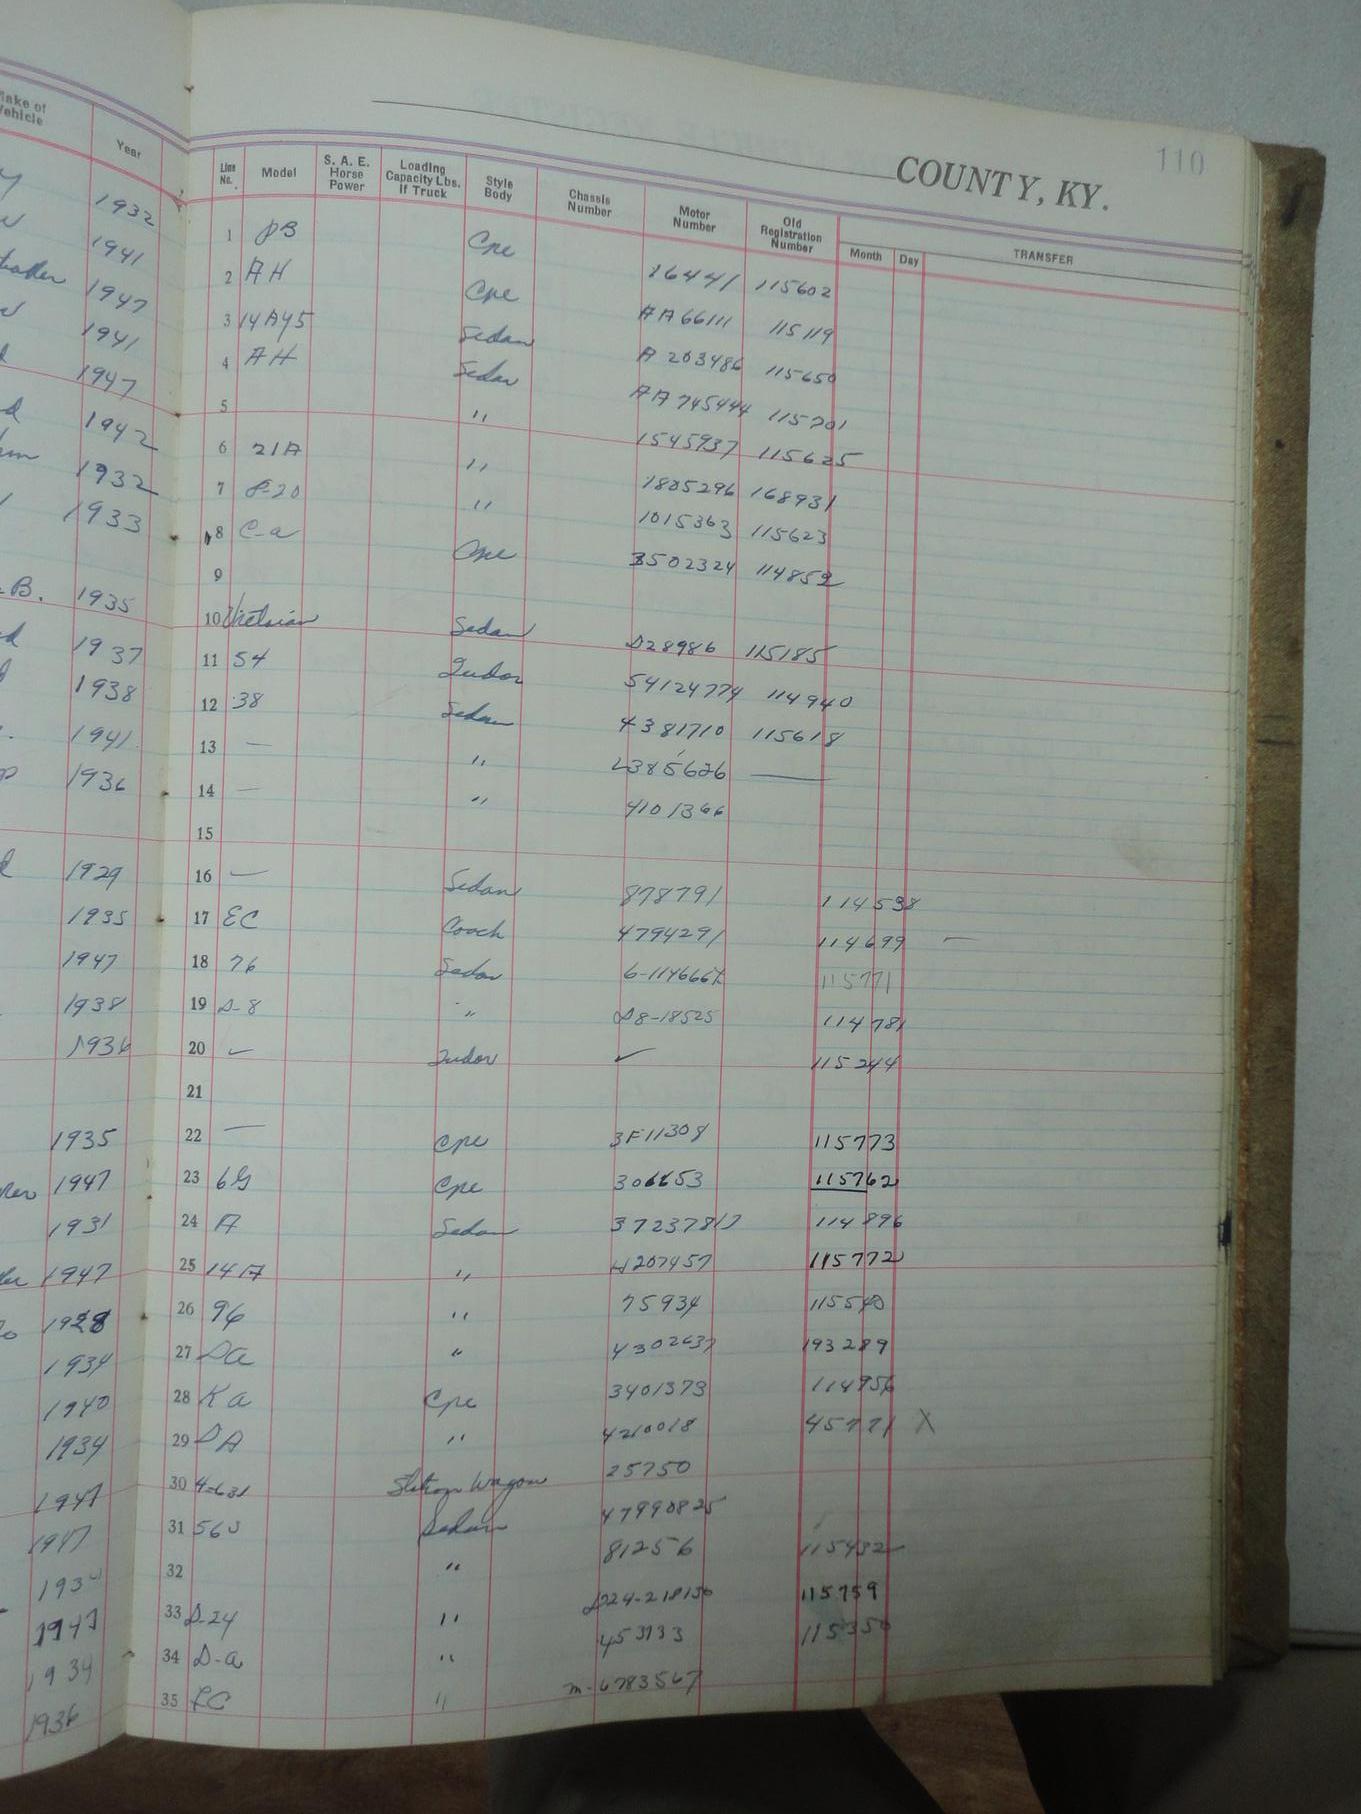 110
COUNTY, KY.
Make of Vehicle Year Line No. Model S. A. E. Horse Power Loading Capacity Lbs. If Truck Style Body Chassis Number Motor Number Old Registration Number Month Day TRANSFER
1932 1 PB Cpe 16441 115602
1941 2 AH Cpe AA66111 115119
1947 3 14A45 Sedan A 203486 115650
1941 4 AH Sedan AA745444 115701
1947 5 " 1545937 115625
1942 6 21A " 1805296 168931
1932 7 P-20 " 1015363 115623
1933 8 C-a Cpe 3502324 114852
9
B. 1935 10 Victorian Sedan D28986 115185
1937 11 54 Tudor 54124774 114940
1938 12 38 Sedan 4381710 115618
1941 13 — " L385626 —
1936 14 — " 4101366
15
1929 16 — Sedan 878791 114538
1935 17 EC Coach 4794291 114699 —
1947 18 76 Sedan 6-1146667 115771
1938 19 D-8 " D8-18525 114781
1936 20 Tudor ✓ 115244
21
1935 22 — Cpe 3F11308 115773
1947 23 6G Cpe 306653 115762
1931 24 A Sedan 37237817 114896
1947 25 14A " H207457 115772
1928 26 96 " 75934 115540
1934 27 Da " 4302637 193289
1940 28 Ka Cpe 3401373 114956
1934 29 DA " 4210018 45771 X
1947 30 4-631 Station Wagon 25750
1947 31 56 Sedan 47990825
32 " 81256 115432
1947 33 D-24 " D24-218130 115759
1934 34 D-a " 453733 115350
1936 35 " m-6783567